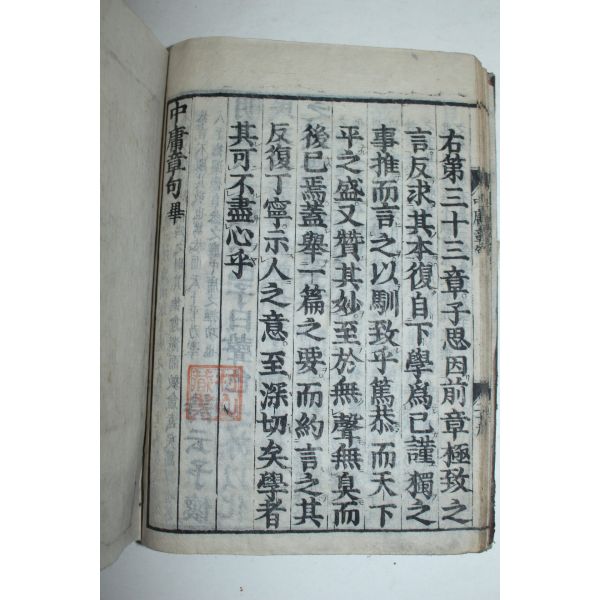 右第三十三章子思因前章極致之
言反求其本復自下學爲己謹獨之
事推而言之以馴致乎篤恭而天下
平之盛又贊其妙至於無聲無臭而
後已焉蓋舉一篇之要而約言之其
反復丁寧示人之意至深切矣學者
其可不盡心乎
中庸章句畢